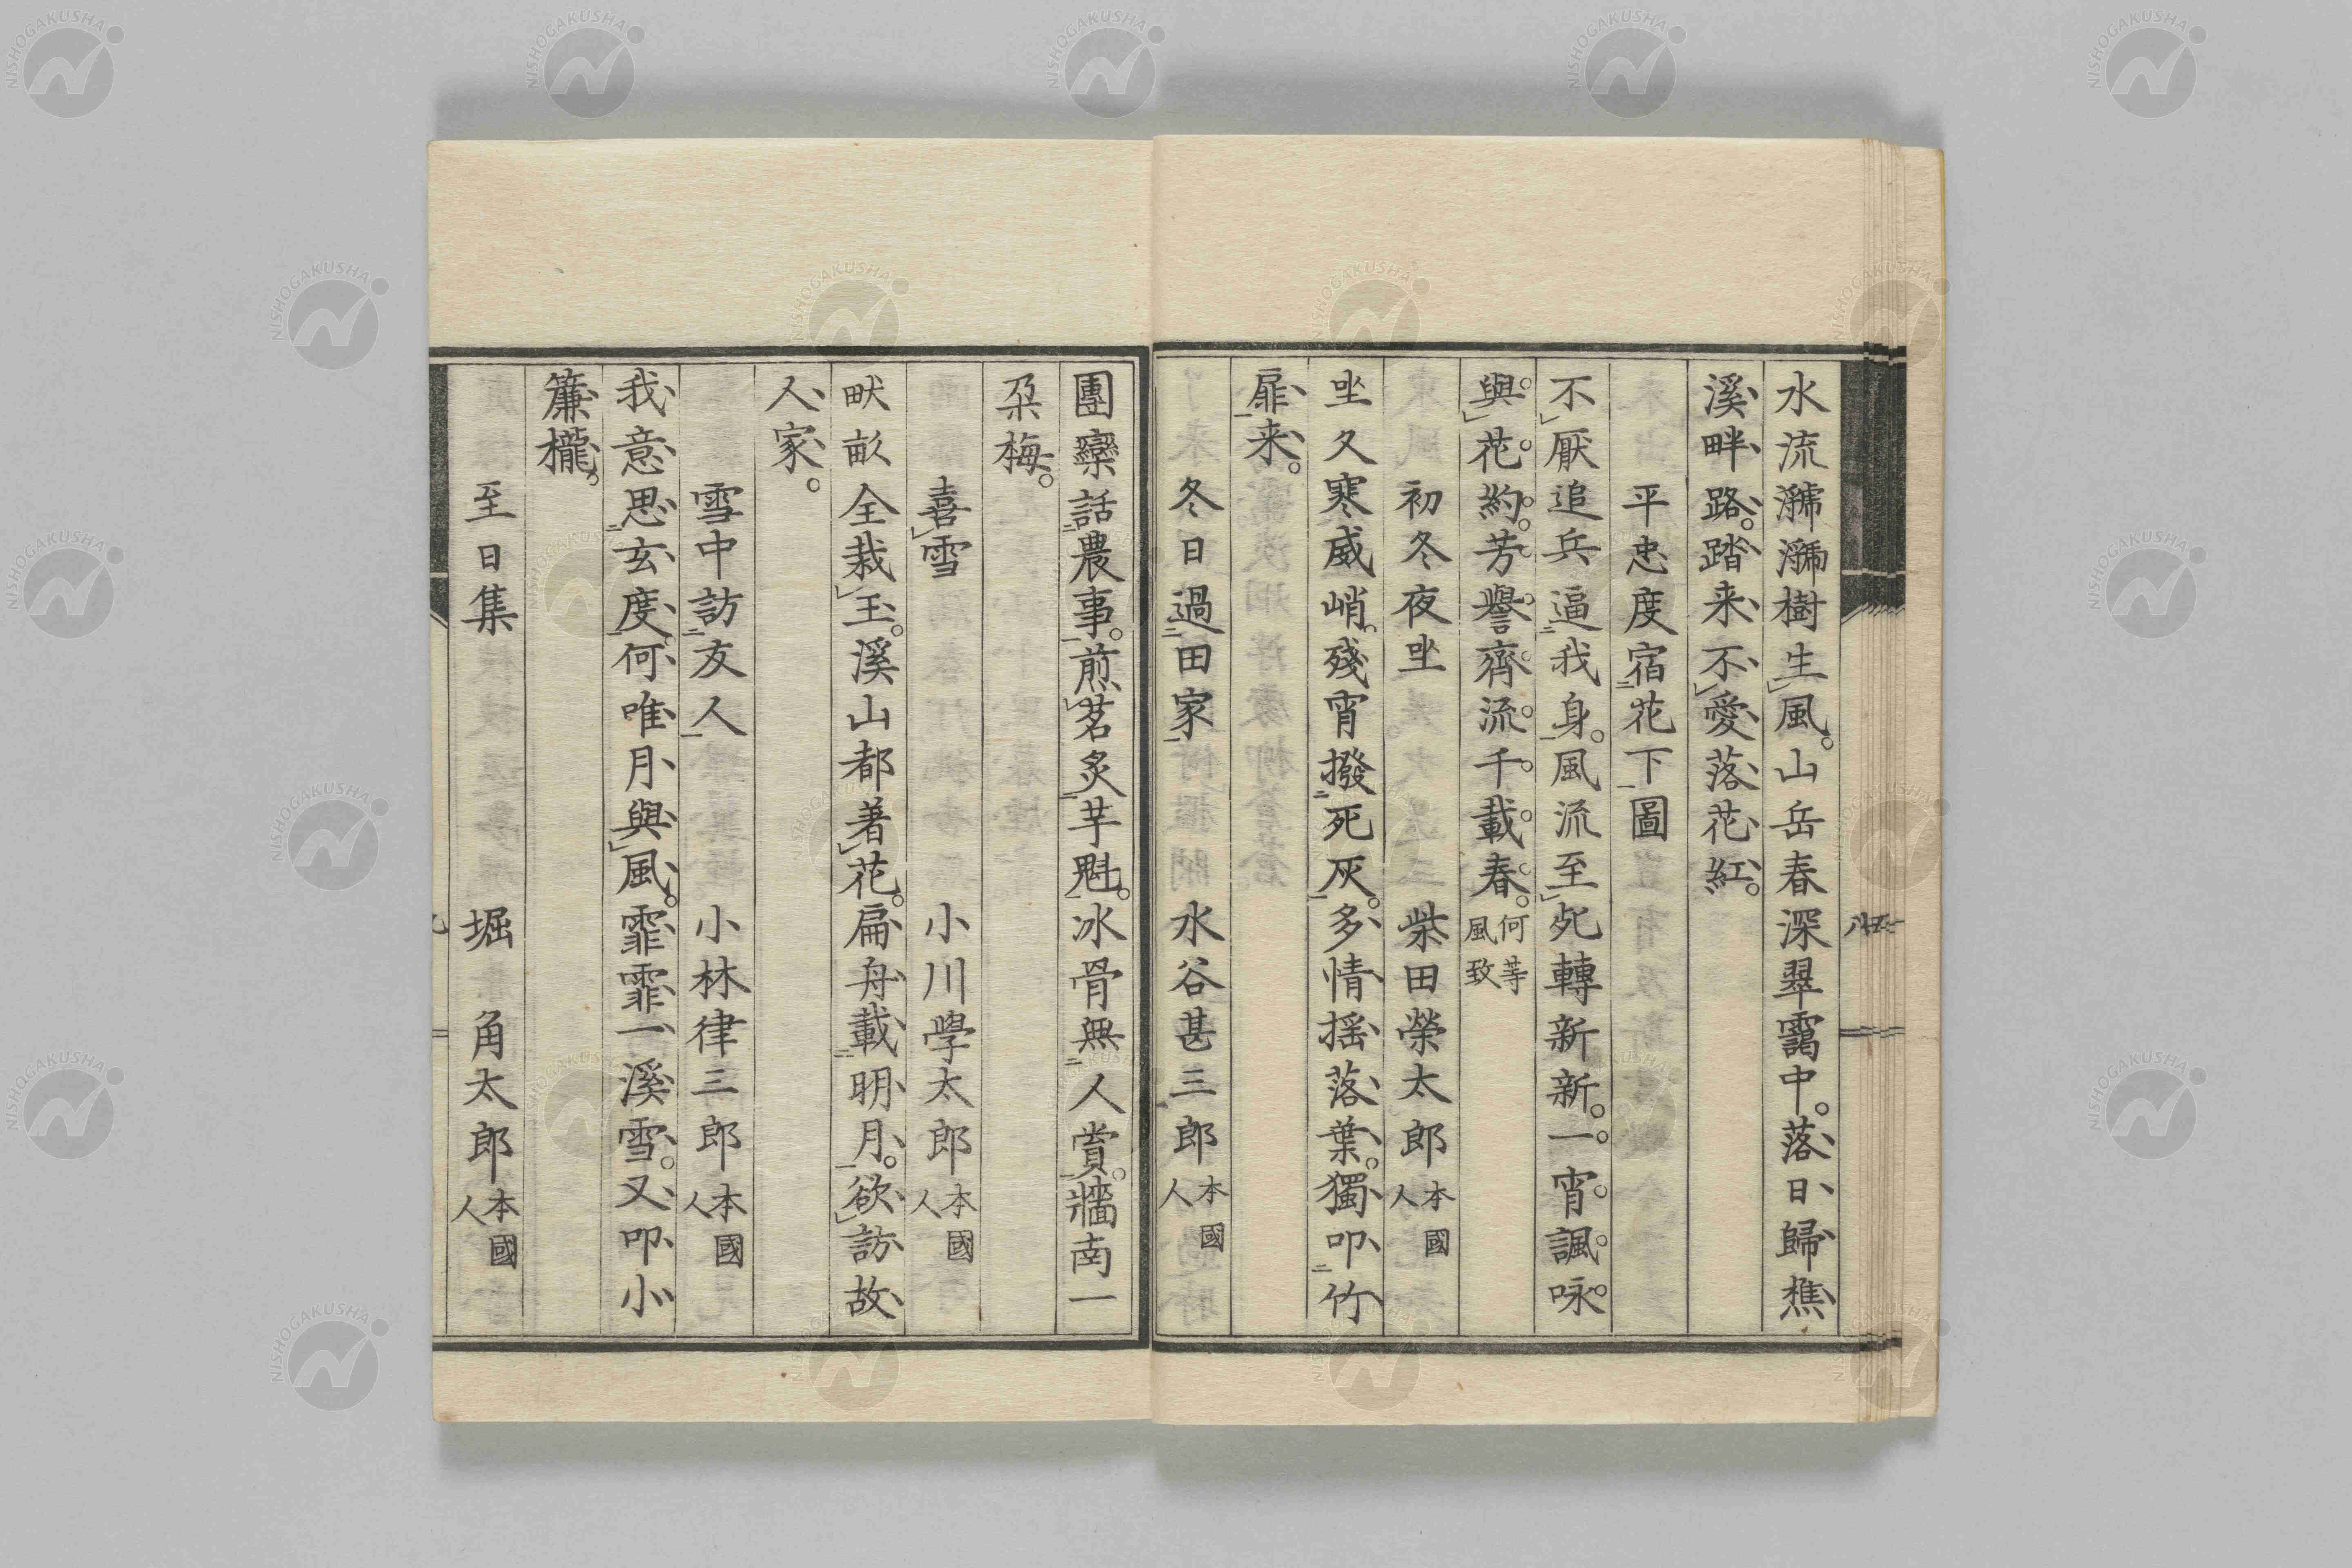 水流瀰瀰樹生風。山岳春深翠靄中。落日歸樵
溪畔路。踏来不愛落花紅。
平忠度宿花下圖
不厭追兵逼我身。風流至死轉新新。一宵諷咏
與花約。芳譽齊流千載春。何等風致
初冬夜坐 柴田榮太郎 本國人
坐久寒威峭。殘宵撥死灰。多情揺落葉。獨叩竹
扉来。
冬日過田家 水谷甚三郎 本國人
團欒話農事。煎茗炙芋魁。冰骨無人賞。牆南一
朶梅。
喜雪 小川學太郎 本國人
畎畝全栽玉。溪山都著花。扁舟載明月。欲訪故
人家。
雪中訪友人 小林律三郎 本國人
我意思玄度。何唯月與風。霏霏一溪雪。又叩小
簾櫳。
至日集 堀 角太郎 本國人